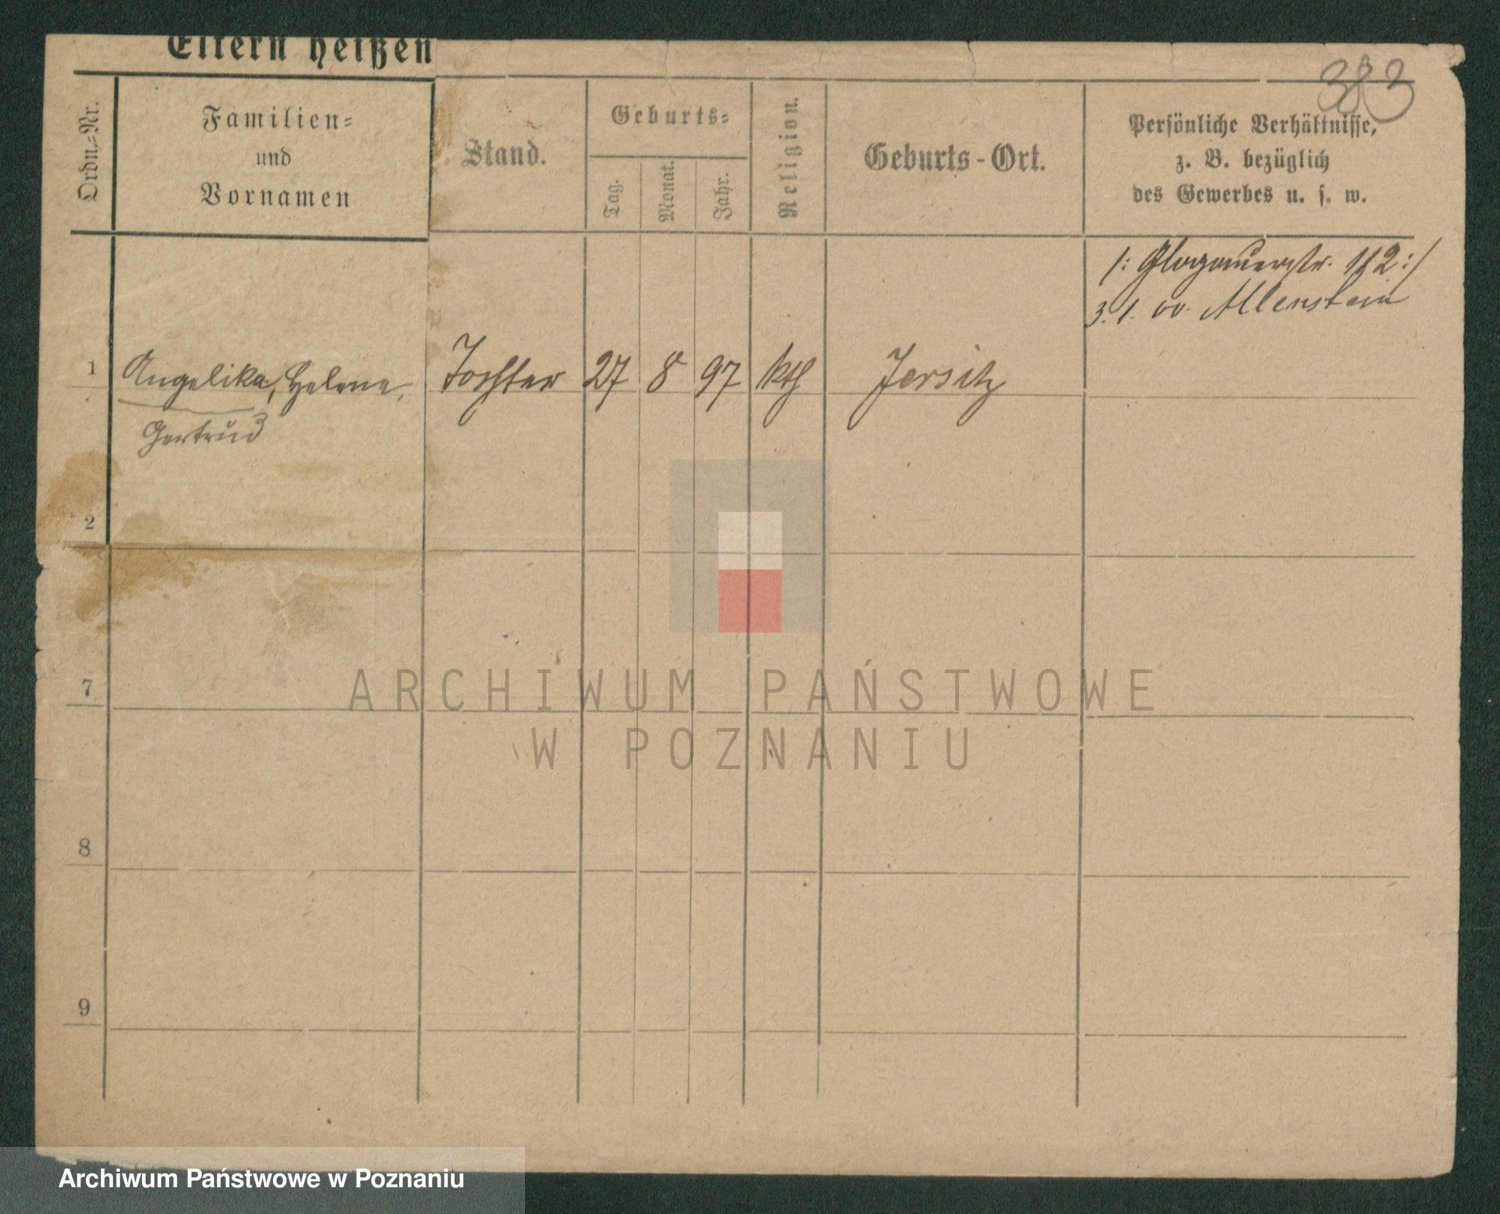 Eltern heißen
383
Ordn.-Nr.
Familien-
und
Vornamen
Stand.
Geburts-
Tag.
Monat.
Jahr.
Religion.
Geburts-Ort.
Persönliche Verhältnisse,
z. B. bezüglich
des Gewerbes u. s. w.
/: Glogauerstr. 112 :/
3. 1. 00. Allenstein
1 Angelika, Helene, Tochter 27 8 97 kth Jersitz
Gertrud
2
7
8
9
ARCHIWUM PAŃSTWOWE
W POZNANIU
Archiwum Państwowe w Poznaniu